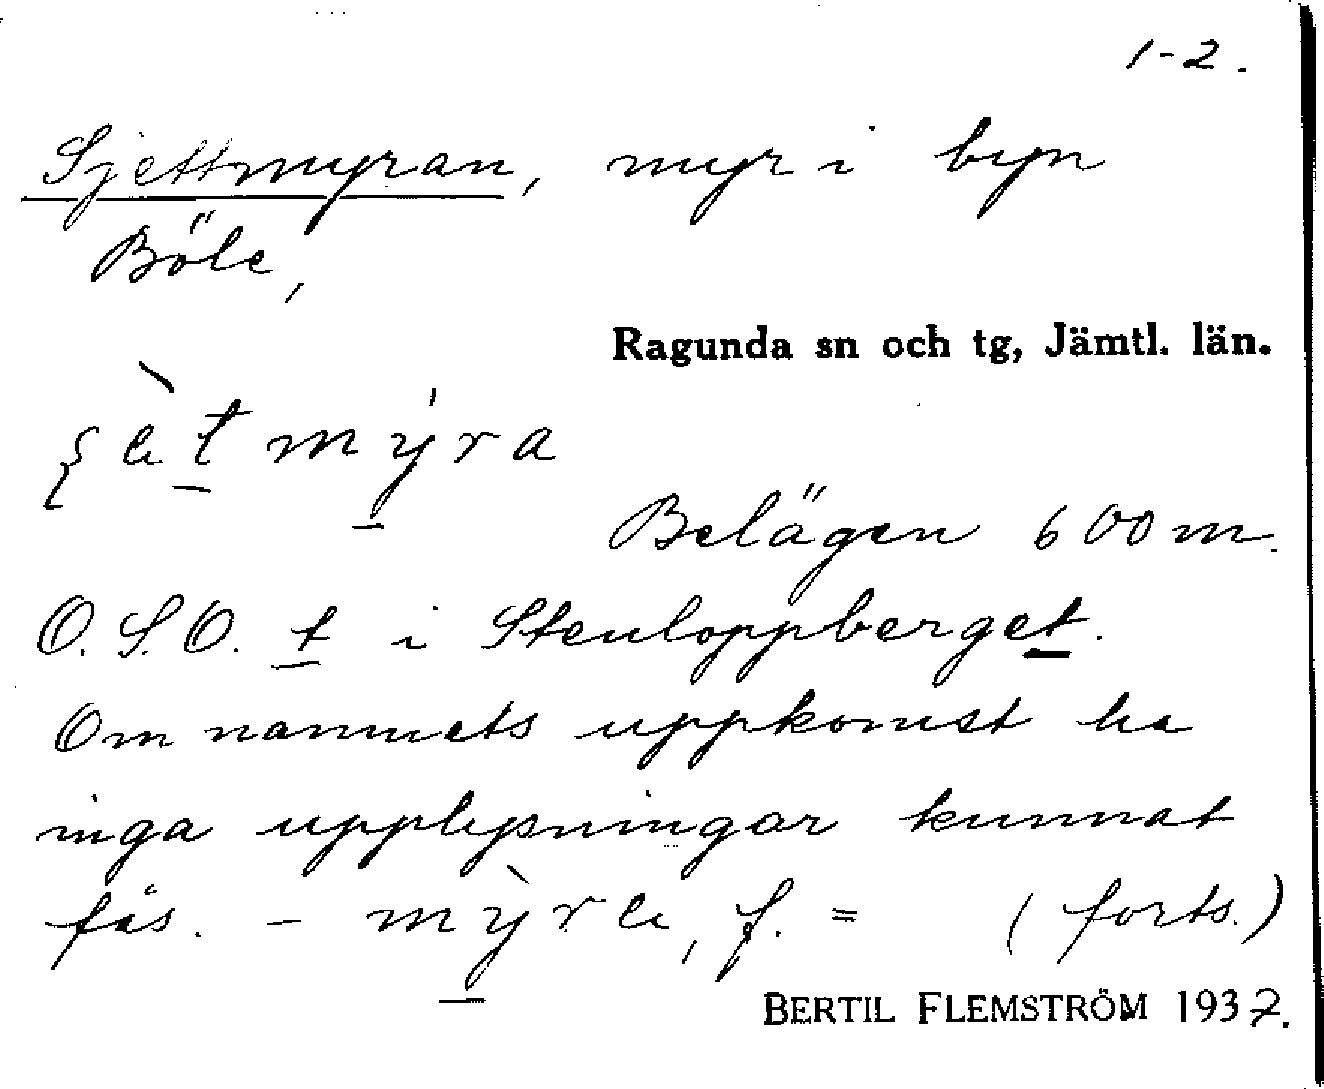 1-2.
Sjettmyran, myr i byn
Böle,
Ragunda sn och tg, Jämtl. län.
Belägen 600 m.
O.S.O. t i Stenloppberget.
Om namnets uppkomst ha
inga upplysningar kunnat
fås. - mỳra, f. = (forts.)
BERTIL FLEMSTRÖM 1937.